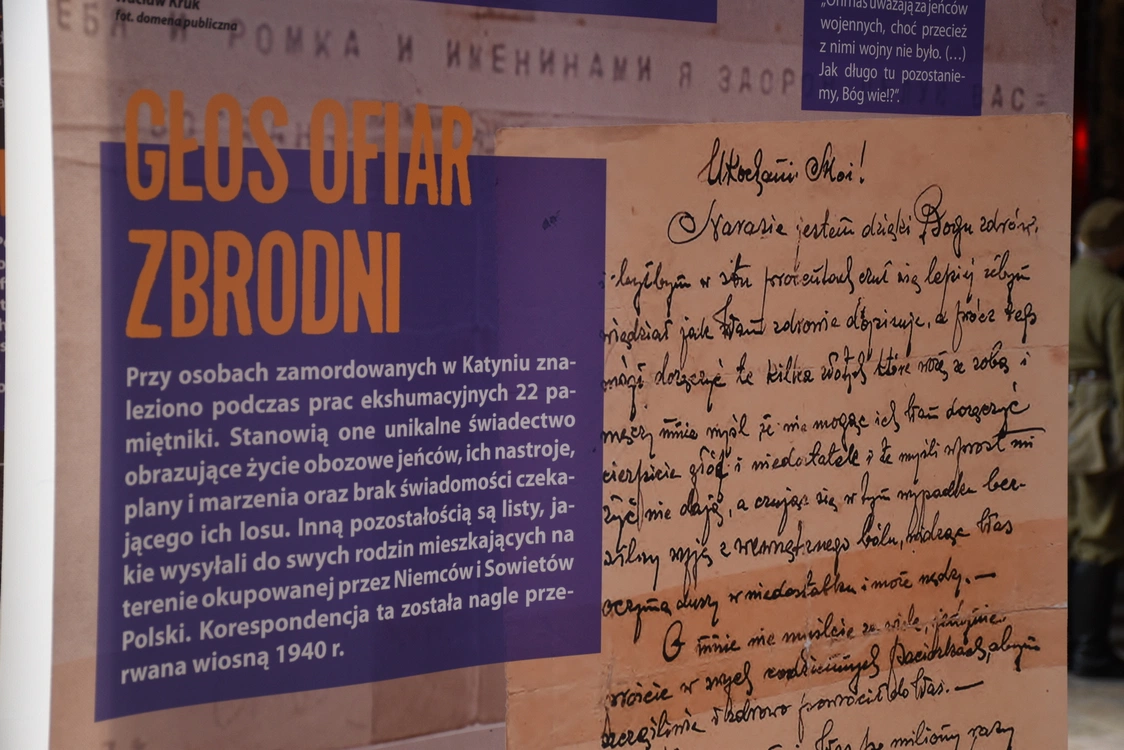 Wacław Kruk
fot. domena publiczna
"Oni nas uważają za jeńców
wojennych, choć przecież
z nimi wojny nie było. (...)
Jak długo tu pozostanie-
my, Bóg wie!?".
И РОМКА И ИМЕНИНАМИ Я ЗДОРО ВАС=
GŁOS OFIAR
ZBRODNI
Przy osobach zamordowanych w Katyniu zna-
leziono podczas prac ekshumacyjnych 22 pa-
miętniki. Stanowią one unikalne świadectwo
obrazujące życie obozowe jeńców, ich nastroje,
plany i marzenia oraz brak świadomości czeka-
jącego ich losu. Inną pozostałością są listy, ja-
kie wysyłali do swych rodzin mieszkających na
terenie okupowanej przez Niemców i Sowietów
Polski. Korespondencja ta została nagle prze-
rwana wiosną 1940 r.
Ukochani Moi!
Narazie jestem dzięki Bogu zdrów,
i byłbym w stu procentach czuł się lepiej żebym
wiedział jak Wam zdrowie dopisuje, a prócz tego
mógł doręczyć te kilka złotych które noszę ze sobą i
męczy mnie myśl że nie mogąc ich Wam doręczyć
cierpicie głód i niedostatek i te myśli wprost mi
żyć nie dają, a czując się w tym wypadku bez-
silny wyję z wewnętrznego bólu, widząc Was
oczyma duszy w niedostatku i może nędzy. —
O mnie nie myślcie za wiele, jedynie
wnoście w swych codziennych paciorkach, abym
szczęśliwie i zdrowo powrócił do Was. —
Was po miliony razy